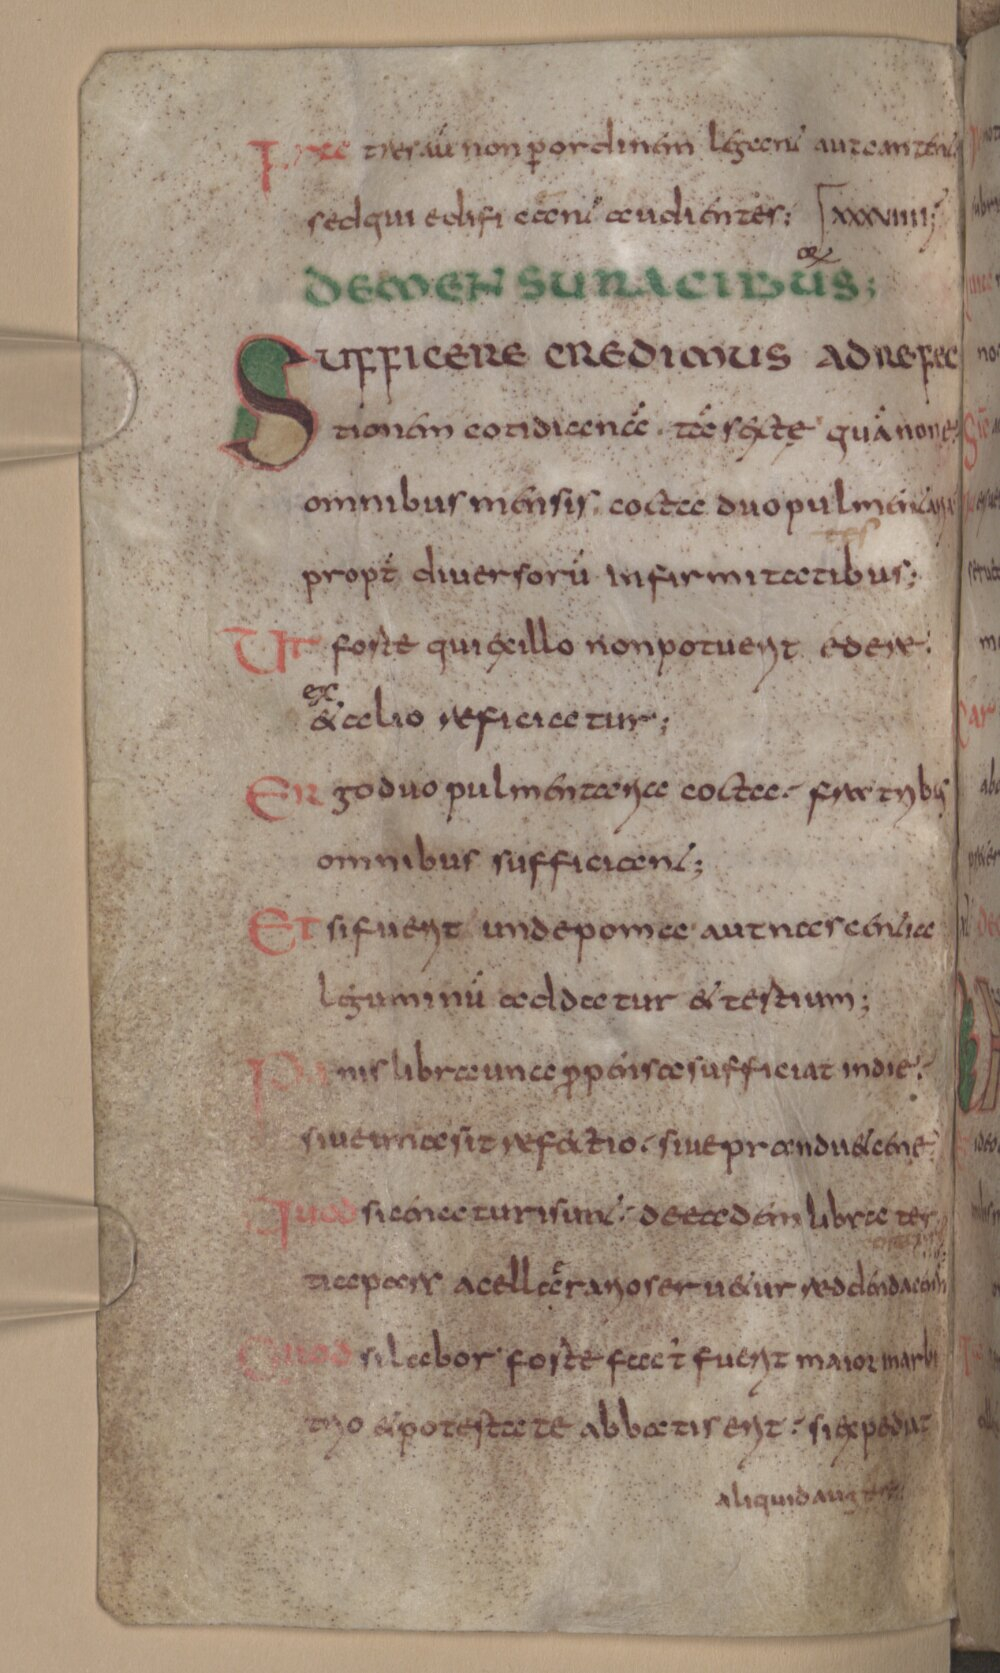 Fratres aū non ꝑ ordinem legant aut cantent
sed qui edificant audientes; xxxviiii;
DE MENSURA CIBUS;
SUFFICERE CREDIMUS AD REFEC
tionem cotidianā. tā sexte quā none
omnibus mensis. cocta duo pulmentaria
propt̄ diversorū infirmitatibus;
Ut forte qui ex illo non potuerit edere.
ex
& alio reficiatur;
Ergo duo pulmentaria cocta. fratribus
omnibus sufficiant;
Et si fuerit unde poma aut nascentia
leguminū addatur & tertium;
Panis libra una ꝓpensa sufficiat in die.
sive una sit refectio. sive prandii & cene
Quod si cenaturi sunt. de eadem libra ter
tia pars a cellarario servetur reddenda
Quod si labor forte fact̄ fuerit maior in arbi
trio & potestate abbatis erit. si expediat
aliquid augere